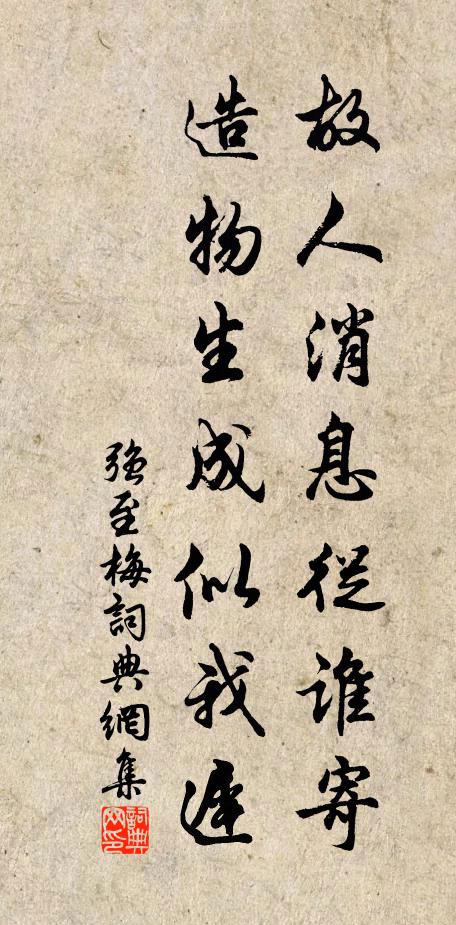 故人消息從誰寄
造物生成似我遲
強至梅詞典網集
詞典網印